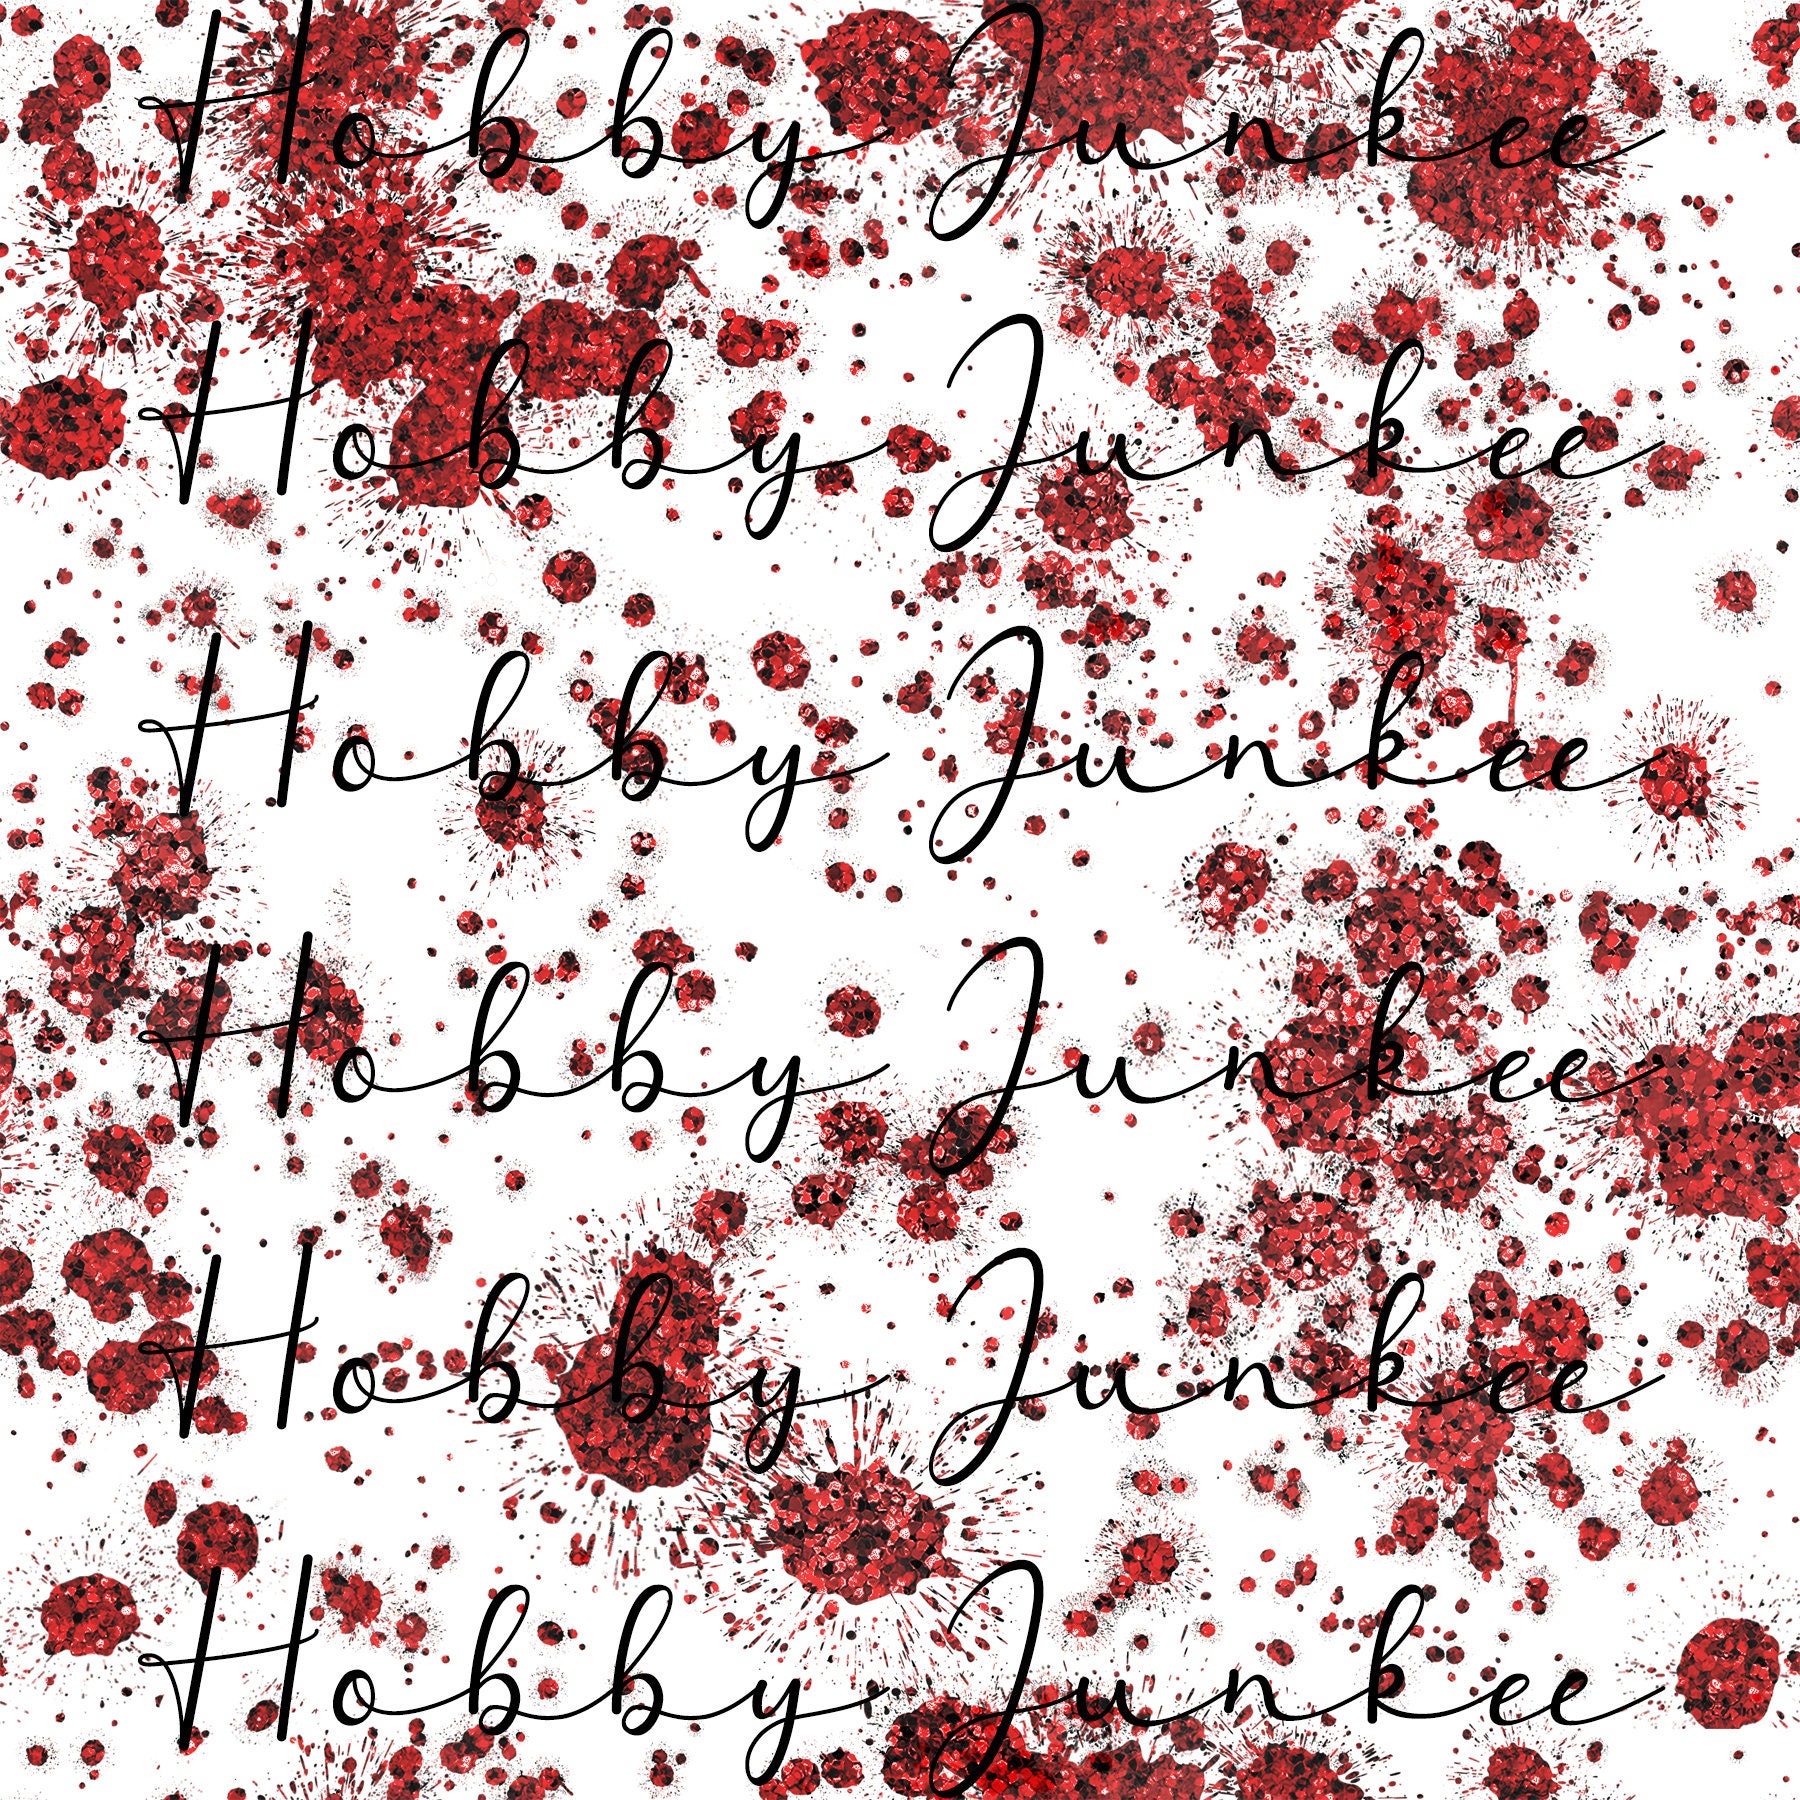 Hobby Junkee
Hobby Junkee
Hobby Junkee
Hobby Junkee
Hobby Junkee
Hobby Junkee